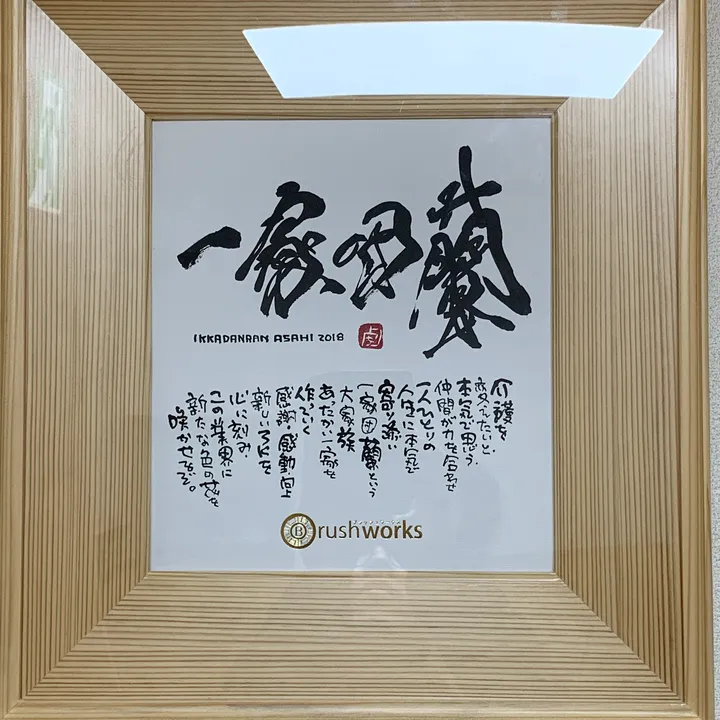 一家団蘭
IKKADANRAN ASAHI 2018
介護を、
変えたいと
本気で思う、
仲間が力を合わせ
一人ひとりの
人生に本気で
寄り添い
一家団蘭という
大家族
あったかい一家を
作っていく
感謝・感動・向上
新しい3Kを
心に刻み
この業界に
新たな色の花を
咲かせるぞ。
Brushworks